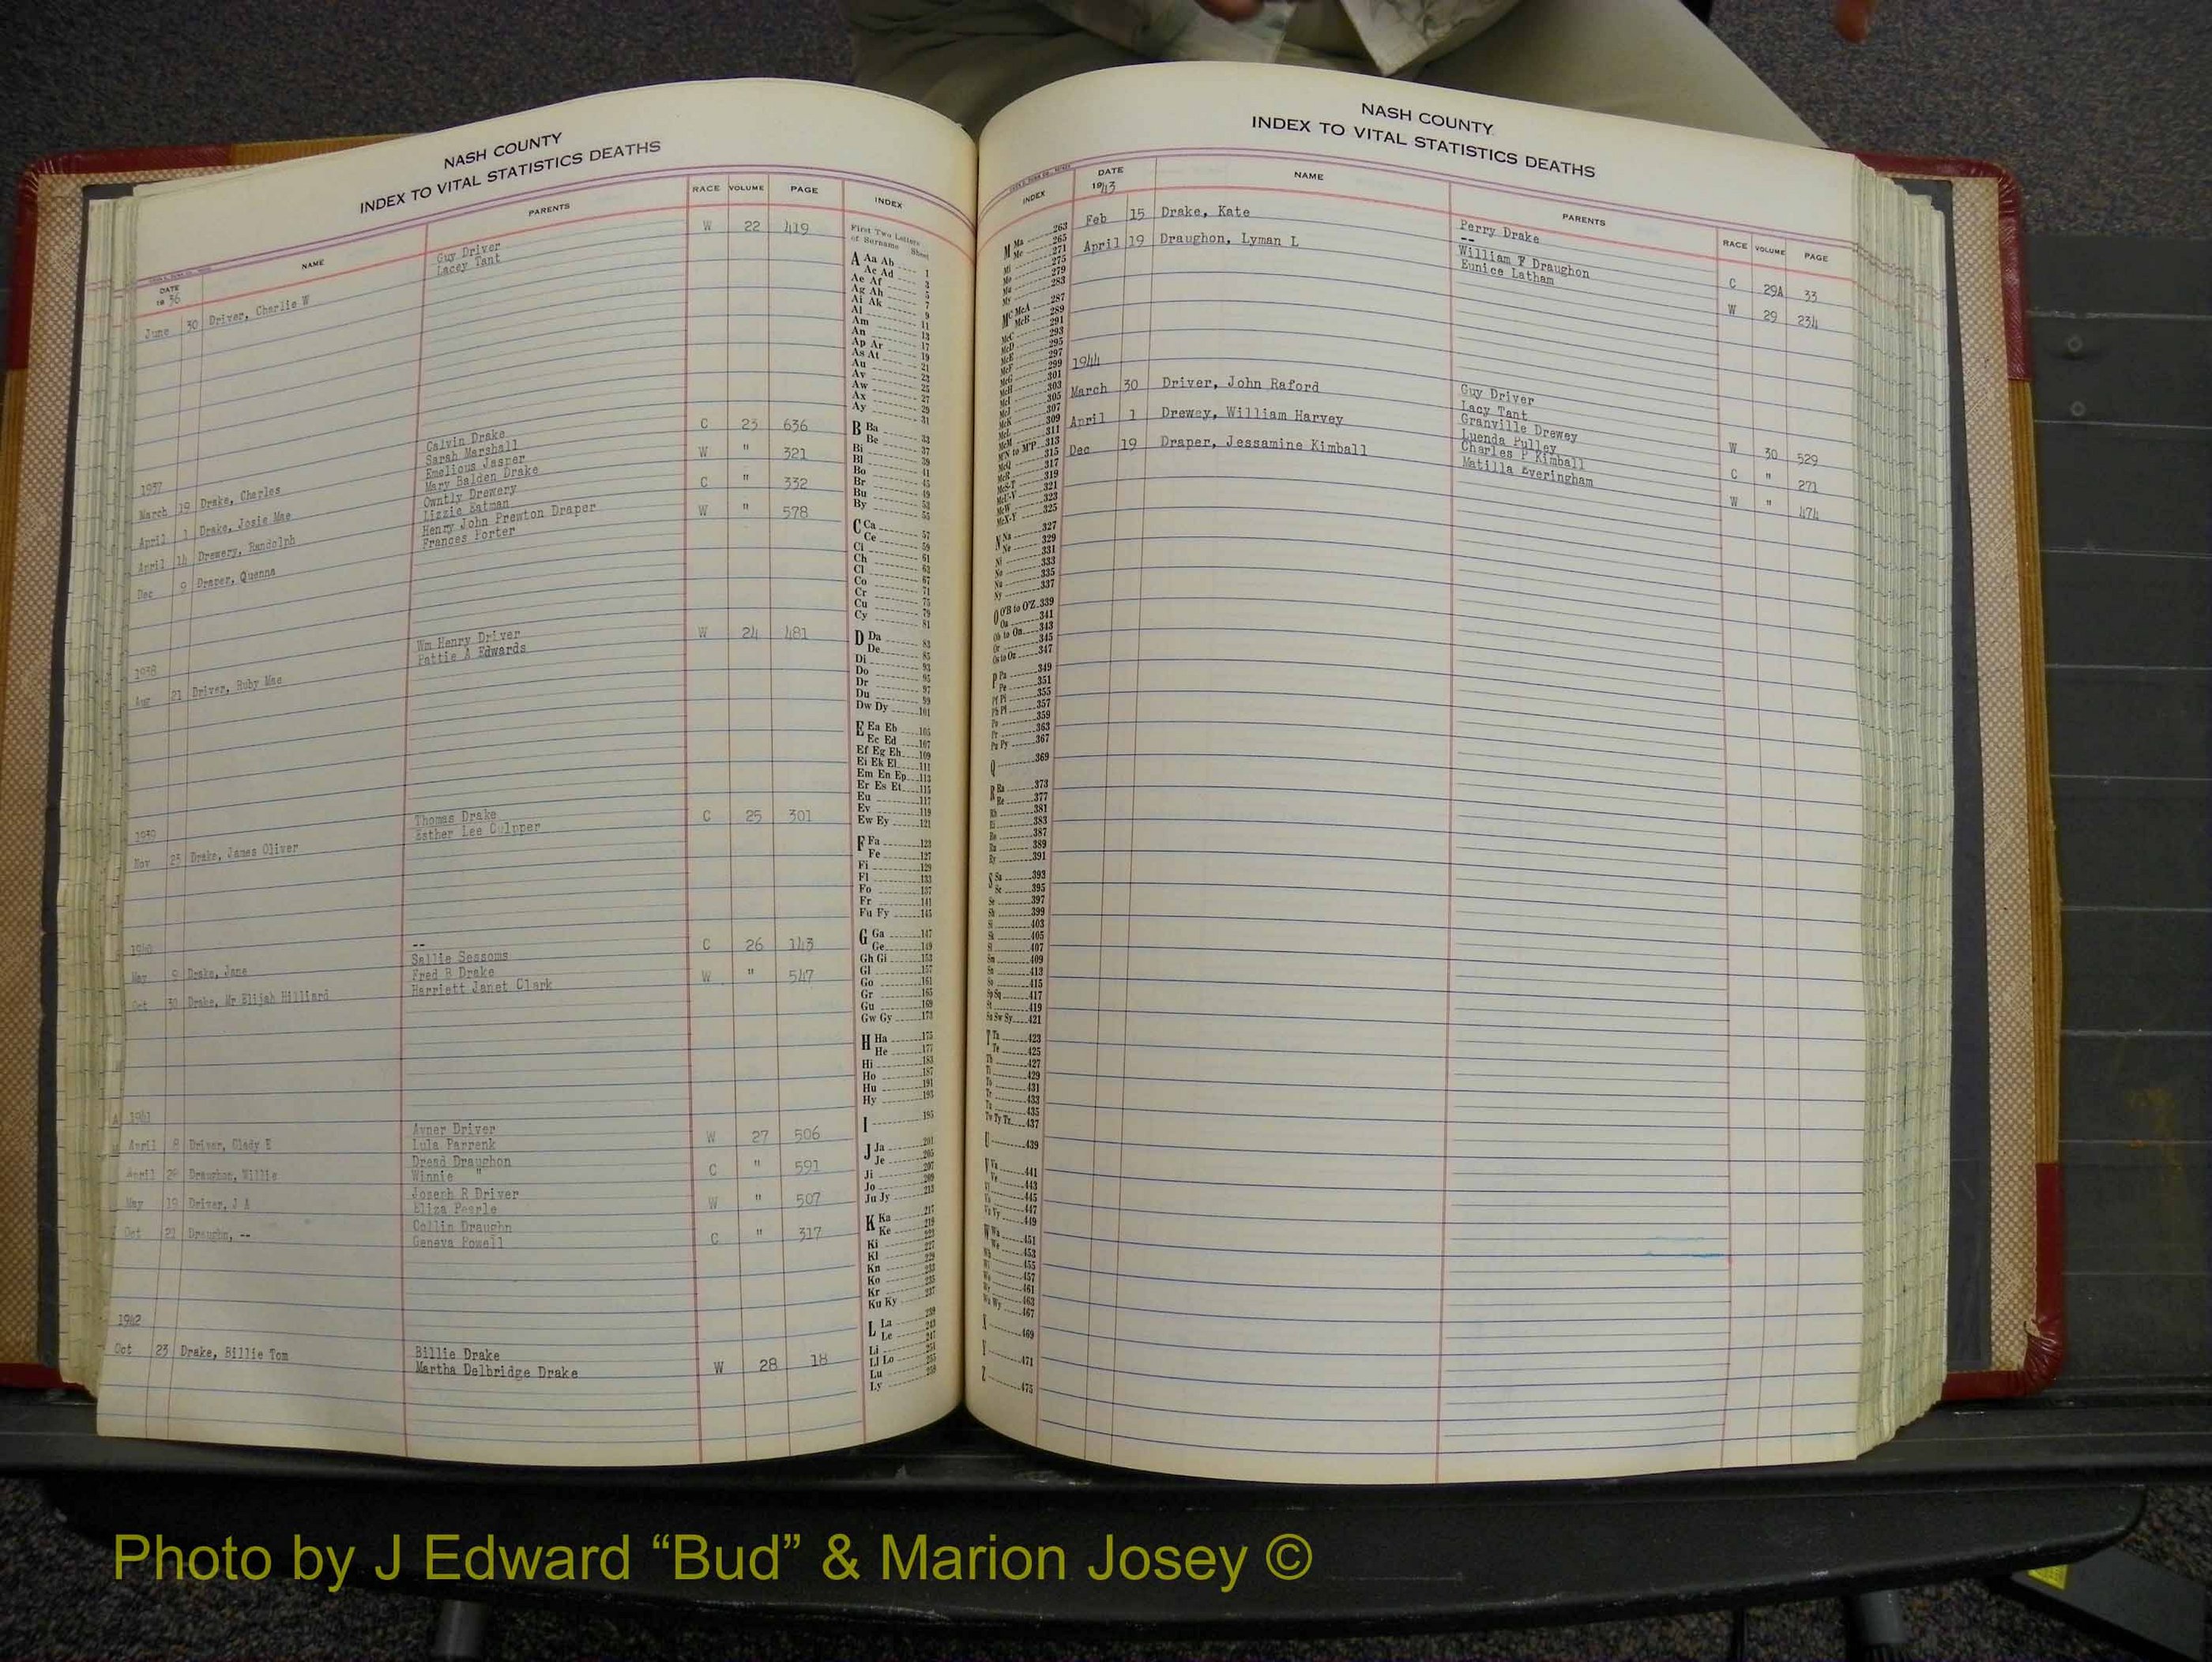 NASH COUNTY
INDEX TO VITAL STATISTICS DEATHS
DATE NAME PARENTS RACE VOLUME PAGE INDEX
1936
June 30 Driver, Charlie W Guy Driver W 22 419
Lacey Tant
1937
March 19 Drake, Charles Calvin Drake C 23 636
Sarah Marshall
April 1 Drake, Josie Mae Emelious Jasper W " 321
Mary Balden Drake
April 14 Drewery, Randolph Owntly Drewery C " 332
Lizzie Batman
Dec 9 Draper, Quenna Henry John Prewton Draper W " 578
Frances Porter
1938
Aug 21 Driver, Ruby Mae Wm Henry Driver W 24 481
Pattie A Edwards
1939
Nov 23 Drake, James Oliver Thomas Drake C 25 301
Esther Lee Culpper
1940
May 9 Drake, Jane -- C 26 143
Sallie Sessoms
Oct 30 Drake, Mr Elijah Hilliard Fred B Drake W " 547
Harriett Janet Clark
1941
April 8 Driver, Glady E Avner Driver W 27 506
Lula Parrenk
April 28 Draughon, Willie Dread Draughon C " 591
Winnie "
May 19 Driver, J A Joseph R Driver W " 507
Eliza Pearle
Oct 21 Draughn, -- Collin Draughn C " 317
Geneva Powell
1942
Oct 23 Drake, Billie Tom Billie Drake W 28 18
Martha Delbridge Drake
First Two Letters
of Surname Sheet
A Aa Ab 1
Ac Ad 3
Ae Af 5
Ag Ah 7
Ai Ak 9
Al 11
Am 13
An 17
Ap Ar 19
As At 21
Au 23
Av 25
Aw 27
Ax 29
Ay 31
B Ba 33
Be 37
Bi 39
Bl 41
Bo 45
Br 49
Bu 53
By 55
C Ca 57
Ce 59
Ci 61
Ch 63
Cl 67
Co 71
Cr 75
Cu 79
Cy 81
D Da 83
De 85
Di 93
Do 95
Dr 97
Du 99
Dw Dy 101
E Ea Eb 105
Ec Ed 107
Ef Eg Eh 109
Ei Ek El 111
Em En Ep 113
Er Es Et 115
Eu 117
Ev 119
Ew Ey 121
F Fa 123
Fe 127
Fi 129
Fl 133
Fo 137
Fr 141
Fu Fy 145
G Ga 147
Ge 149
Gh Gi 153
Gl 157
Go 161
Gr 165
Gu 169
Gw Gy 173
H Ha 175
He 177
Hi 183
Ho 187
Hu 191
Hy 193
I 195
J Ja 201
Je 205
Ji 207
Jo 209
Ju Jy 213
K Ka 217
Ke 219
Ki 223
Kl 227
Kn 229
Ko 233
Kr 235
Ku Ky 237
L La 239
Le 243
Li 247
Ll Lo
Lu
Ly
NASH COUNTY
INDEX TO VITAL STATISTICS DEATHS
INDEX DATE NAME PARENTS RACE VOLUME PAGE
1943
Feb 15 Drake, Kate Perry Drake C 29A 33
--
April 19 Draughon, Lyman L William F Draughon W 29 234
Eunice Latham
1944
March 30 Driver, John Raford Guy Driver W 30 529
Lacy Tant
April 1 Drewey, William Harvey Granville Drewey C " 271
Luenda Pulley
Dec 19 Draper, Jessamine Kimball Charles P Kimball W " 474
Matilla Everingham
M Ma 263
Me 265
Mi 271
275
279
283
Mc McA 287
McB 289
McC 291
McD 293
McE 295
McF 297
McG 299
McH 301
McI 303
McJ 305
McK 307
McL 309
McM 311
M'N to M'P 313
McQ 315
317
McS-T 319
McU-V 321
McW 323
McX-Y 325
N Na 327
Ne 329
Ni 331
No 333
Nu 335
Ny 337
O O'B to O'Z 339
Oa 341
Ob to On 343
Or 345
Os to Oz 347
P Pa 349
Pe 351
Pf Pi 355
Ph Pl 357
Po 359
Pr 363
Pu Py 367
Q 369
R Ra 373
Re 377
Rh 381
Ri 383
Ro 387
Ru 389
Ry 391
S Sa 393
Sc 395
Se 397
Sh 399
Si 403
Sk 405
Sl 407
Sm 409
Sn 413
So 415
Sp Sq 417
St 419
Su Sw Sy 421
T Ta 423
Te 425
Th 427
Ti 429
To 431
Tr 433
Tu 435
Tw Ty Tz 437
U 439
V Va 441
Ve 443
Vi 445
Vo 447
Vu Vy 449
W Wa 451
We 453
Wh 455
Wi 457
Wo 461
Wr 463
Wu Wy 467
X 469
Y 471
Z 475
Photo by J Edward “Bud” & Marion Josey ©